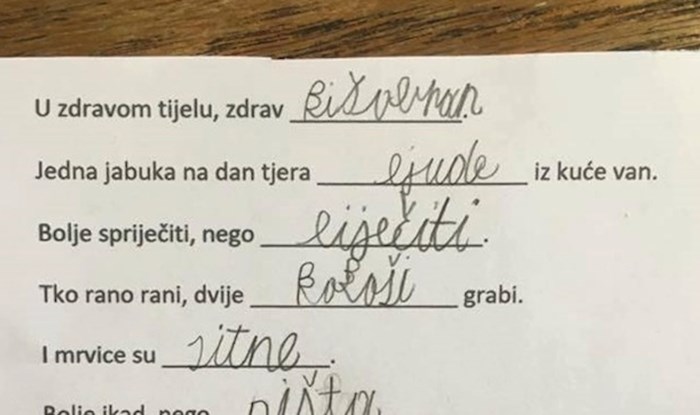 U zdravom tijelu, zdrav Bižvenan.
Jedna jabuka na dan tjera ljude iz kuće van.
Bolje spriječiti, nego liječiti.
Tko rano rani, dvije kokoši grabi.
I mrvice su sitne.
Bolje ikad, nego ništa